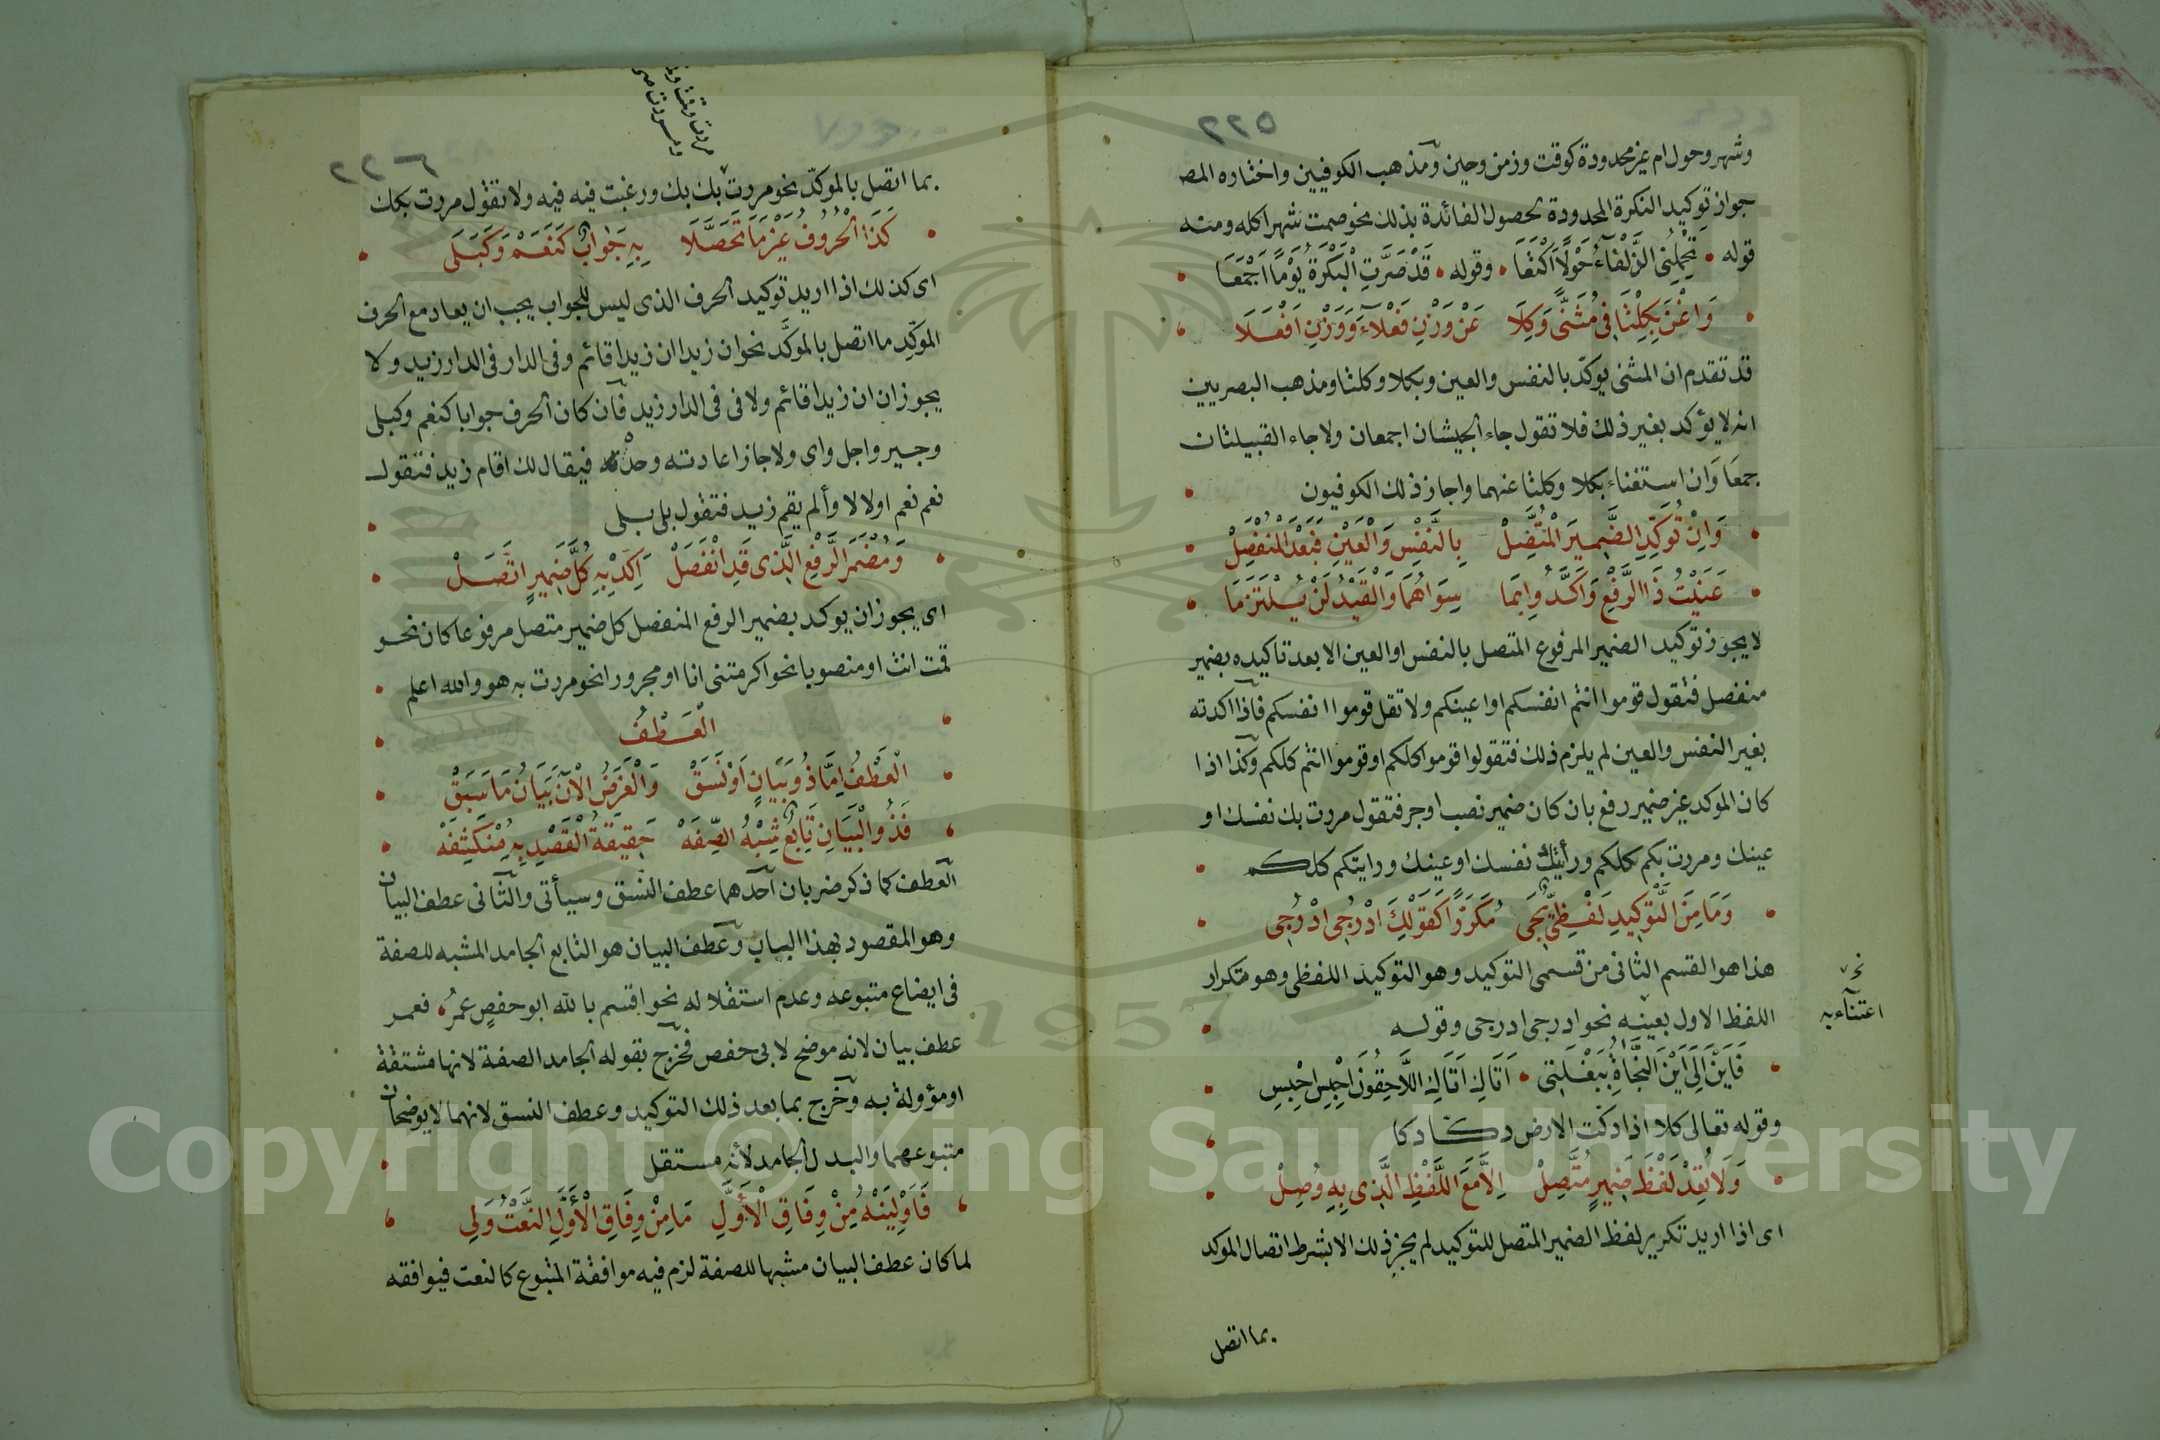 ٢٢٥
وشهر وحول ام غير محدودة كوقت وزمن وحين ومذهب الكوفيين واختاره المص
جواز توكيد النكرة المحدودة لحصول الفائدة بذلك نحو صمت شهرا كله ومنه
قوله • تَحْمِلُنِى الذَّلْفَآءُ حَوْلًا اَكْتَعَا • وقوله • قَدْ صَرَّتِ الْبَكْرَةُ يَوْمًا اَجْمَعَا •
• وَاغْنَ بِكِلْتَا فِى مُثَنًّى وَكِلَا عَنْ وَزْنِ فَعْلَآءَ وَوَزْنِ اَفْعَلَا •
قد تقدم ان المثنى يوكد بالنفس والعين وبكلا وكلتا ومذهب البصريين
انه لا يؤكد بغير ذلك فلا تقول جاء الجيشان اجمعان ولا جاء القبيلتان
جمعاوان استغناء بكلا وكلتا عنهما واجاز ذلك الكوفيون •
• وَاِنْ تُوَكِّدِ الضَّمِيرَ الْمُتَّصِلْ بِالنَّفْسِ وَالْعَيْنِ فَبَعْدَ الْمُنْفَصِلْ •
• عَنَيْتُ ذَا الرَّفْعِ وَاَكَّدُوا بِمَا سِوَاهُمَا وَالْقَيْدُ لَنْ يُلْتَزَمَا •
لا يجوز توكيد الضمير المرفوع المتصل بالنفس او العين الا بعد تاكيده بضمير
منفصل فتقول قوموا انتم انفسكم او اعينكم ولا تقل قوموا انفسكم فاذا اكدته
بغير النفس والعين لم يلزم ذلك فتقولوا قوموا كلكم او قوموا انتم كلكم وكذا اذا
كان الموكد غير ضمير رفع بان كان ضمير نصب او جر فتقول مررت بك نفسك او
عينك ومررت بكم كلكم ورأيتك نفسك او عينك ورايتكم كلكم •
• وَمَا مِنَ التَّوْكِيدِ لَفْظِىٌّ يَجِى مُكَرَّرًا كَقَوْلِكَ ادْرُجِى ادْرُجِى •
هذا هو القسم الثانى من قسمى التوكيد وهو التوكيد اللفظى وهو تكرار
اللفظ الاول بعينه نحو ادرجى ادرجى وقوله •
نحـ
اعتنآء به
• فَاَيْنَ اِلَى اَيْنَ النَّجَاةُ بِبَغْلَتِى • اَتَاكِ اَتَاكِ اللَّاحِقُونَ احْبِسِ احْبِسِ •
وقوله تعالى كلا اذا دكت الارض دكا دكا •
• وَلَا تُعِدْ لَفْظَ ضَمِيرٍ مُتَّصِلْ اِلَّا مَعَ اللَّفْظِ الَّذِى بِهِ وُصِلْ •
اى اذا اريد تكرير لفظ الضمير المتصل للتوكيد لم يجز ذلك الا بشرط اتصال الموكد
بما اتصل
٢٢٦
بما اتصل بالموكد نحو مررت بك بك ورغبت فيه فيه ولا تقول مررت بكك
• كَذَا الْحُرُوفُ غَيْرَ مَا تَحَصَّلَا بِهِ جَوَابٌ كَنَعَمْ وَكَبَلَى •
اى كذلك اذا اريد توكيد الحرف الذى ليس للجواب يجب ان يعاد مع الحرف
الموكِّد ما اتصل بالموكَّد نحو ان زيدا ان زيدا قائم وفى الدار فى الدار زيد ولا
يجوز ان ان زيدا قائم ولا فى فى الدار زيد فان كان الحرف جوابا كنعم وكبلى
وجير واجل واى ولا جاز اعادته وحده فيقال لك اقام زيد فتقول
نعم نعم او لا لا وألم يقم زيد فتقول بلى بلى •
• وَمُضْمَرَ الرَّفْعِ الَّذِى قَدِ انْفَصَلْ اَكِّدْ بِهِ كُلَّ ضَمِيرٍ اتَّصَلْ •
اى يجوز ان يوكد بضمير الرفع المنفصل كل ضمير متصل مرفوعا كان نحو
قمت انت او منصوبا نحو اكرمتنى انا او مجرورا نحو مررت به هو والله اعلم •
• الْعَطْفُ •
• الْعَطْفُ اِمَّا ذُو بَيَانٍ اَوْ نَسَقْ وَالْغَرَضُ الْآنَ بَيَانُ مَا سَبَقْ •
• فَذُو الْبَيَانِ تَابِعٌ شِبْهُ الصِّفَهْ حَقِيقَةُ الْقَصْدِ بِهِ مُنْكَشِفَهْ •
العطف كما ذكر ضربان احدهما عطف النسق وسيأتى والثانى عطف البيان
وهو المقصود بهذا الباب وعطف البيان هو التابع الجامد المشبه للصفة
فى ايضاع متبوعه وعدم استقلاله نحو اقسم بالله ابو حفصٍ عمرُ • فعمر
عطف بيان لانه موضح لابى حفص فخرج بقوله الجامد الصفة لانها مشتقة
او مؤولة به وخرج بما بعد ذلك التوكيد وعطف النسق لانهما لا يوضحان
متبوعهما والبدل الجامد لأنه مستقل •
• فَاَوْلِيَنْهُ مِنْ وِفَاقِ الْأَوَّلِ مَا مِنْ وِفَاقِ الْأَوَّلِ النَّعْتُ وَلِى •
لما كان عطف البيان مشبها للصفة لزم فيه موافقة المتبوع كالنعت فيوافقه
Copyright © King Saud University
1957